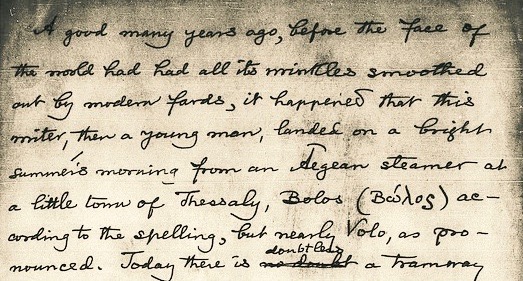 A good many years ago, before the face of
the world had had all its wrinkles smoothed
out by modern fards, it happened that this
writer, then a young man, landed on a bright
summer's morning from an Aegean steamer at
a little town of Thessaly, Bolos (Βώλος) ac-
cording to the spelling, but nearly Volo, as pro-
doubtless
nounced. Today there is no doubt a tramway